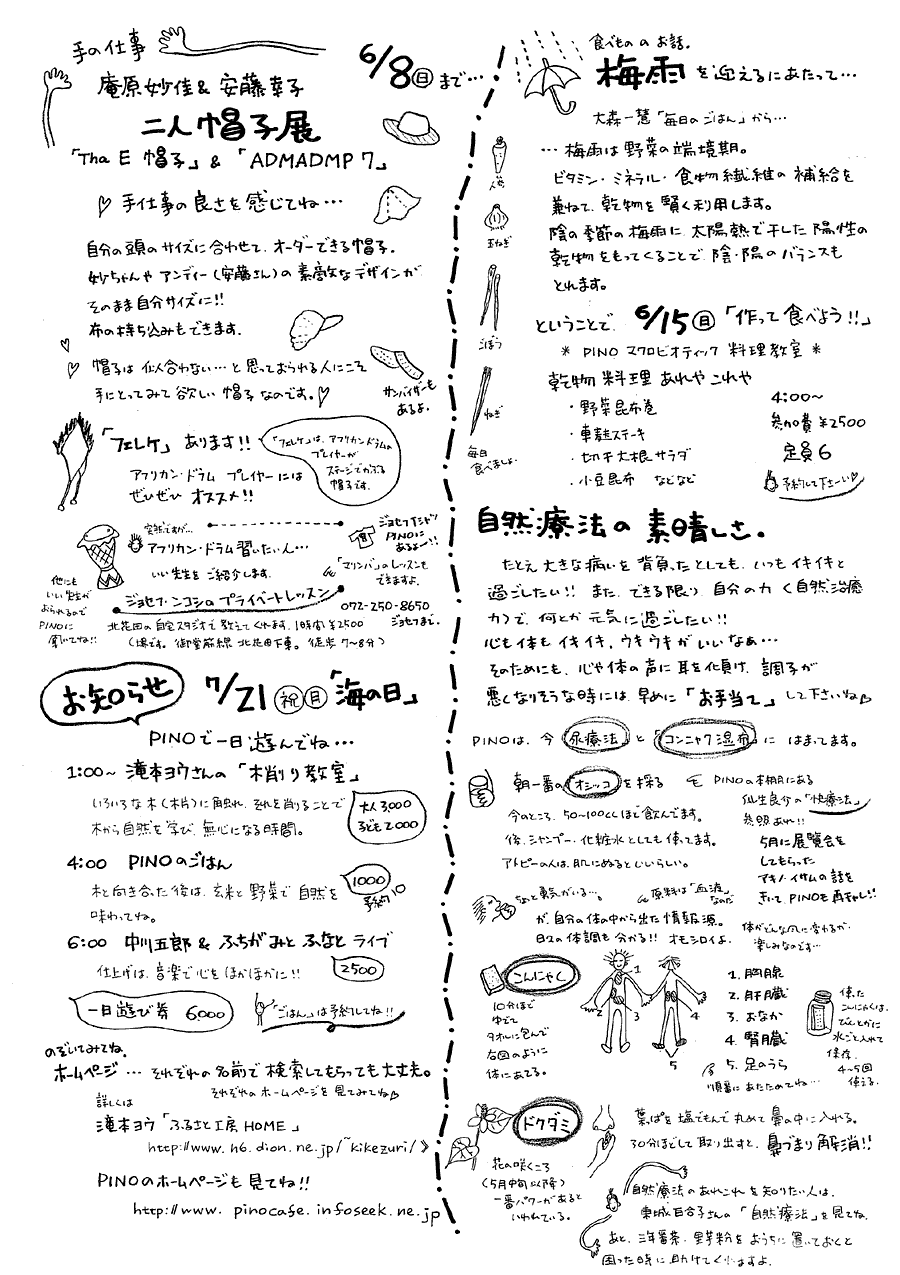 手の仕事
6/8(日)まで…
庵原妙佳&安藤幸子
二人帽子展
「Tha E 帽子」&「ADMADMP 7」
♡ 手仕事の良さを感じてね…
自分の頭のサイズに合わせて、オーダーできる帽子。
妙ちゃんやアンディー(安藤さん)の素敵なデザインが
そのまま自分サイズに!!
布の持ち込みもできます。
♡ 帽子は似合わない…と思っておられる人にこそ
手にとってみて欲しい帽子なのです。♡
サンバイザーも
あるよ。
「フェレケ」あります!!
「フェレケ」は、アフリカンドラムの
プレイヤーが
ステージでかぶる
帽子です。
アフリカン・ドラム プレイヤーには
ぜひぜひ オススメ!!
突然ですが…
アフリカン・ドラム習いたい人…
いい先生をご紹介します。
ジョセフTシャツ
PINOに
あるよ〜!!
「マリンバ」のレッスンも
できますよ。
他にも
いい先生が
おられるので
PINOに
聞いてね!!
ジョセフ・ンコシのプライベートレッスン
072-250-8650
ジョセフまで。
北花田の自宅スタジオで教えてくれます。1時間¥2500
(堺です。御堂筋線 北花田下車。徒歩7〜8分)
お知らせ
7/21(祝)(月)「海の日」
PINOで一日遊んでね…
1:00〜 滝本ヨウさんの「木削り教室」
いろいろな木(木片)に触れ、それを削ることで
木から自然を学び、無心になる時間。
大人3,000
子ども2000
4:00 PINOのごはん
木と向き合った後は、玄米と野菜で自然を
味わってね。
1000
予約
6:00 中川五郎 & ふちがみとふなと ライブ
仕上げは、音楽で心をほかほかに!!
2500
一日遊び券 6,000
「ごはん」は予約してね!!
のぞいてみてね。
ホームページ … それぞれの名前で検索してもらっても大丈夫。
詳しくは
それぞれのホームページを見てみてね
滝本ヨウ「ふるさと工房HOME」
http://www.h6.dion.ne.jp/~kikezuri/
PINOのホームページも見てね!!
http://www.pinocafe.infoseek.ne.jp
食べもののお話。
梅雨を迎えるにあたって…
大森一慧「毎日のごはん」から…
… 梅雨は野菜の端境期。
ビタミン・ミネラル・食物繊維の補給を
兼ねて、乾物を賢く利用します。
陰の季節の梅雨に、太陽熱で干した陽性の
乾物をもってくることで、陰・陽のバランスも
とれます。
人参
玉ねぎ
ごぼう
ねぎ
毎日
食べましょ。
ということで、6/15(日)「作って食べよう!!」
* PINO マクロビオティック 料理教室 *
乾物料理あれやこれや
・野菜昆布巻
・車麩ステーキ
・切干大根サラダ
・小豆昆布 などなど
4:00〜
参加費¥2500
定員6
予約して下さーい♡
自然療法の素晴しさ。
たとえ大きな病いを背負ったとしても、いつもイキイキと
過ごしたい!! また、できる限り、自分の力(自然治癒
力)で、何とか元気に過ごしたい!!
心も体もイキイキ、ウキウキがいいなぁ…
そのためにも、心や体の声に耳を傾け、調子が
悪くなりそうな時には、早めに「お手当て」して下さいね
PINOは、今「尿療法」と「コンニャク湿布」にはまってます。
朝一番のオシッコを採る
今のところ、50〜100ccほど飲んでます。
後、シャンプー・化粧水としても使ってます。
アトピーの人は、肌にぬるといいらしい。
PINOの本棚にある
仙生良介の「快療法」
参照あれ!!
5月に展覧会を
してもらった
アキノイサムの話を
きいて、PINOも再チャレ!!
ちょと勇気がいる…。
原料は「血液」
なのだ
が、自分の体の中から出た情報源。
日々の体調も分かる!! オモシロイよ。
体がどんな風に変わるか、
楽しみなのです…
こんにゃく
10分ほど
ゆでて
タオルに包んで
右図のように
体にあてる。
1
2
3
4
5
1. 胸腺
2. 肝臓
3. おなか
4. 腎臓
5. 足のうら
順番にあたためてね…
使った
こんにゃくは、
びんとかに
水ごと入れて
保存。
4〜5回
使える。
ドクダミ
花の咲くころ
(5月中旬以降)
一番パワーがあると
いわれている。
葉っぱを塩でもんで丸めて鼻の中に入れる。
30分ほどして取り出すと、鼻づまり解消!!
自然療法のあれこれを知りたい人は、
東城百合子さんの「自然療法」を見てね。
あと、三年番茶・里芋粉をおうちに置いておくと
困った時に助けてくれますよ。